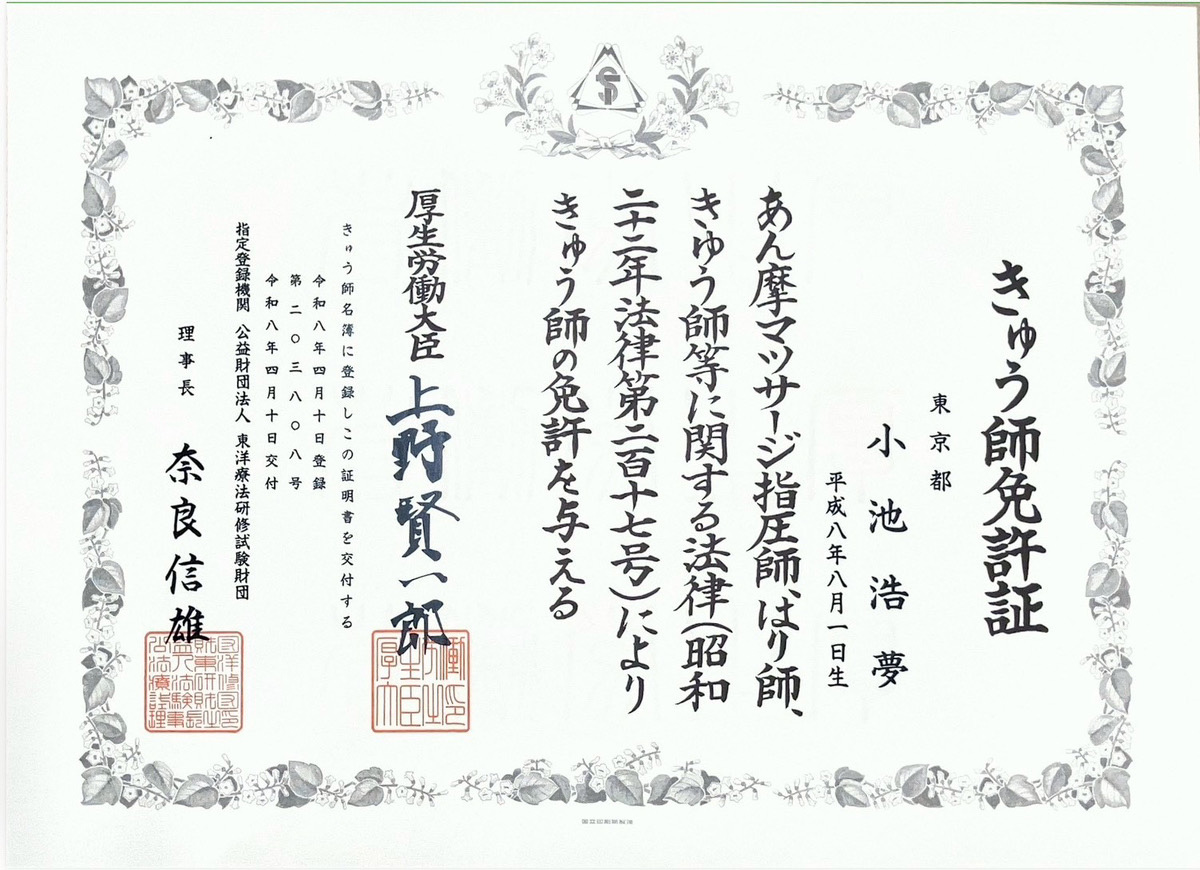 きゅう師免許証
東京都
小池浩夢
平成八年八月一日生
あん摩マツサージ指圧師、はり師、
きゆう師等に関する法律(昭和
二十二年法律第二百十七号)により
きゅう師の免許を与える
厚生労働大臣 上野賢一郎
きゅう師名簿に登録しこの証明書を交付する
令和八年四月十日登録
第二〇三八〇八号
令和八年四月十日交付
指定登録機関 公益財団法人 東洋療法研修試験財団
理事長 奈良信雄